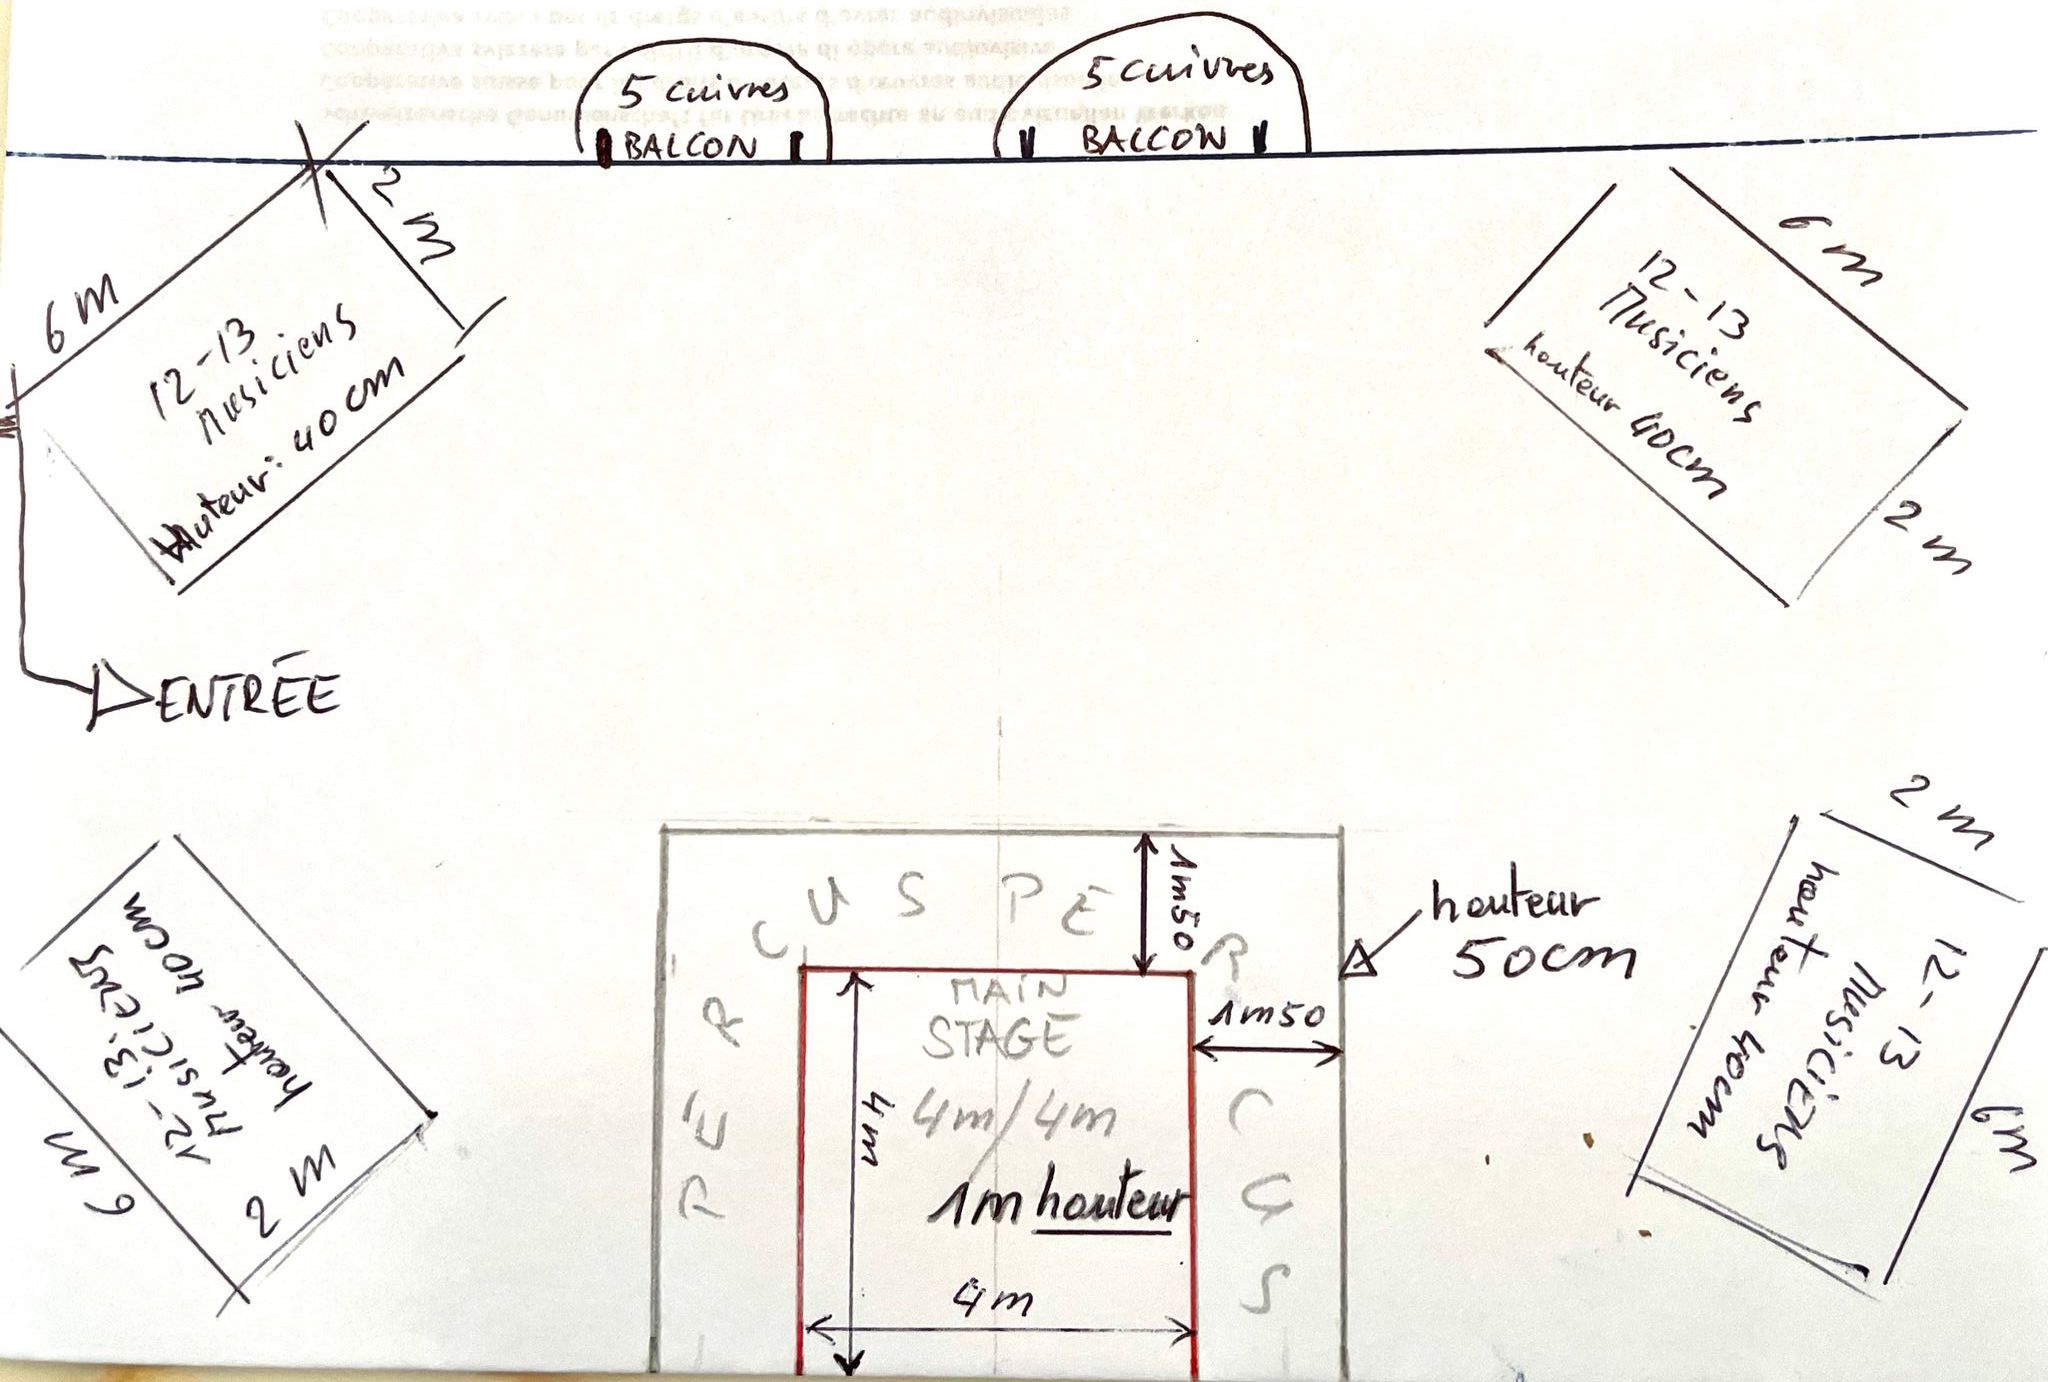 5 cuivres
BALCON
5 cuivres
BALCON
6 m
2 m
12-13
Musiciens
Hauteur: 40 cm
6 m
12-13
Musiciens
hauteur 40cm
2 m
ENTRÉE
hauteur 40cm
12-13
musiciens
6 m
2 m
PERCUSPERCUS
1m50
hauteur
50cm
1m50
MAIN
STAGE
4m/4m
1m hauteur
4m
4m
2 m
12-13
Musiciens
hauteur 40cm
6m